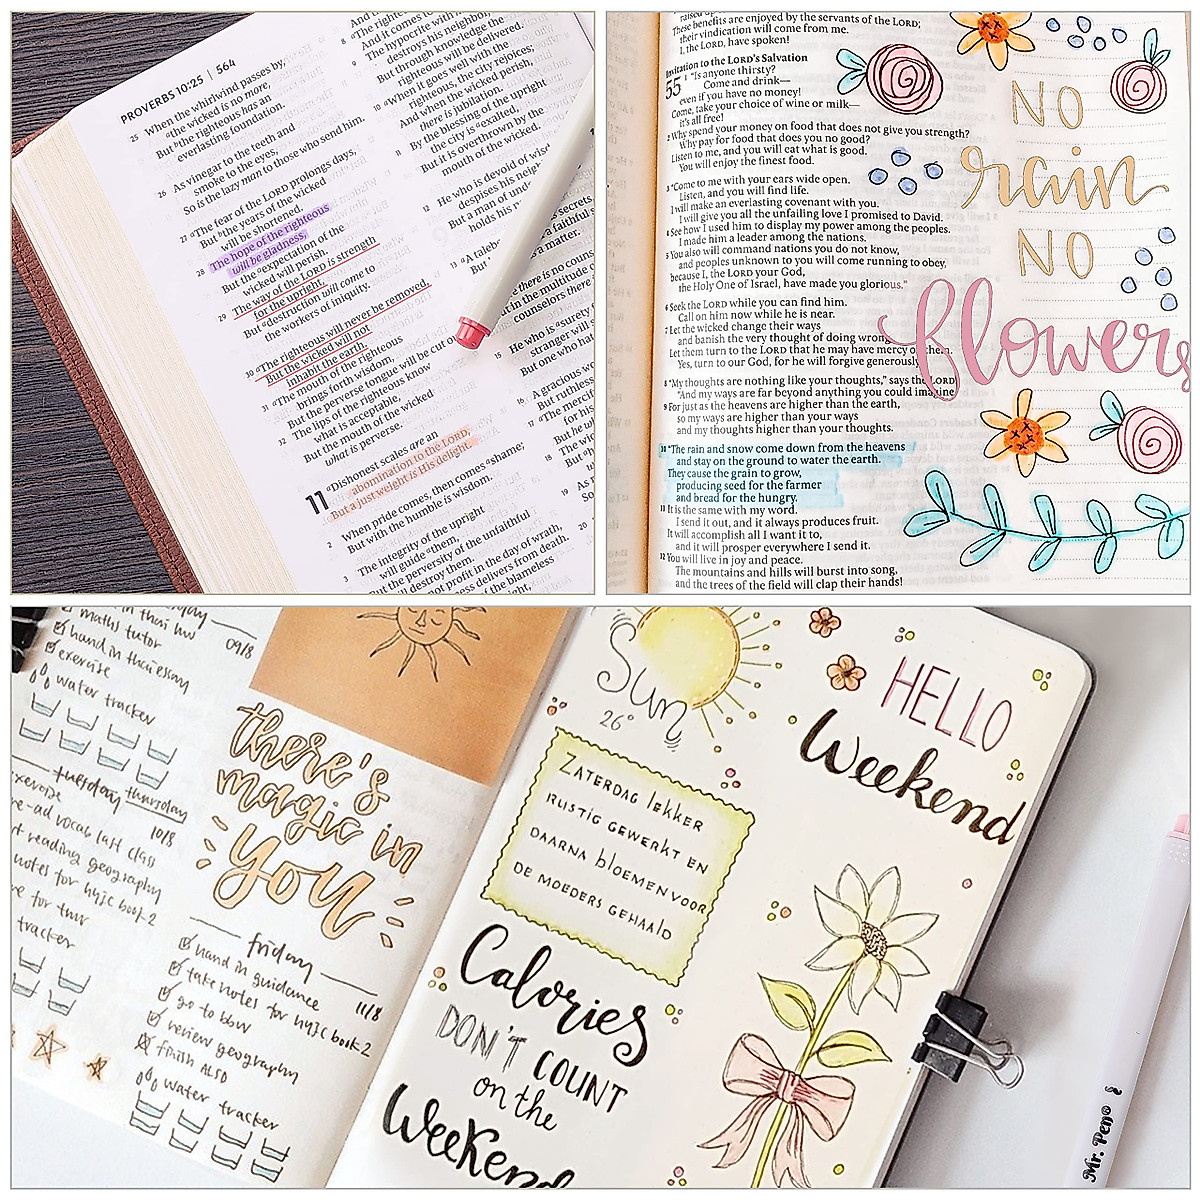 PROVERBS 10:25 | 564
25 When the whirlwind passes by,
ᵃthe wicked is no more,
But ᵇthe righteous has an
everlasting foundation.
26 As vinegar to the teeth and
smoke to the eyes,
So is the lazy man to those who send him.
27 ᵃThe fear of the LORD prolongs days,
But ᵇthe years of the wicked
will be shortened.
28 The hope of the righteous
will be gladness,
But the ᵃexpectation of the
wicked will perish.
29 The way of the LORD is strength
for the upright,
But ᵃdestruction will come to
the workers of iniquity.
30 ᵃThe righteous will never be removed,
But the wicked will not
inhabit the earth.
31 ᵃThe mouth of the righteous
brings forth wisdom,
But the perverse tongue will be cut o
32 The lips of the righteous know
what is acceptable,
But the mouth of the wicked
what is perverse.
11 ᵃDishonest scales are an
abomination to the LORD,
But a just weight is His delight.
2 When pride comes, then comes ᵃshame;
But with the humble is wisdom.
3 The integrity of the upright
will guide ᵃthem,
But the perversity of the unfaithful
will destroy them.
not profit in the day of wrath,
delivers from death.
of the blameless
8 And it comes to
The hypocrite with
destroys his neighbor,
But through knowledge the
righteous will be delivered.
10 ᵃWhen it goes well with the
righteous, the city rejoices;
And when the wicked perish,
there is jubilation.
11 By the blessing of the upright
the city is ᵃexalted,
But it is overthrown by the
mouth of the wicked.
12 He who is devoid of wis
despises his neigh
But a man of und
holds his
13 ᵃA taleb
But
secrets,
a faithful s
a matter.
there is no couns
But in the multitude o
counselors there
15 He who is ᵃsurety
stranger will
But one who hat
16 A gracious wo
But ruthless
17 ᵃThe mercif
for his
18
19
20
raised up
These benefits are enjoyed by the servants of the LORD;
their vindication will come from me.
I, the LORD, have spoken!
Invitation to the LORD's Salvation
55 1 "Is anyone thirsty?
Come and drink—
even if you have no money!
Come, take your choice of wine or milk—
it's all free!
2 Why spend your money on food that does not give you strength?
Why pay for food that does you no good?
Listen to me, and you will eat what is good.
You will enjoy the finest food.
3 "Come to me with your ears wide open.
Listen, and you will find life.
I will make an everlasting covenant with you.
I will give you all the unfailing love I promised to David.
4 See how I used him to display my power among the peoples.
I made him a leader among the nations.
5 You also will command nations you do not know,
and peoples unknown to you will come running to obey,
because I, the LORD your God,
the Holy One of Israel, have made you glorious."
6 Seek the LORD while you can find him.
Call on him now while he is near.
7 Let the wicked change their ways
and banish the very thought of doing wrong
Let them turn to the LORD that he may have mercy on them.
Yes, turn to our God, for he will forgive generously
8 "My thoughts are nothing like your thoughts," says the LORD
"And my ways are far beyond anything you could imagine.
9 For just as the heavens are higher than the earth,
so my ways are higher than your ways
and my thoughts higher than your thoughts.
10 "The rain and snow come down from the heavens
and stay on the ground to water the earth.
They cause the grain to grow,
producing seed for the farmer
and bread for the hungry.
11 It is the same with my word.
I send it out, and it always produces fruit.
It will accomplish all I want it to,
and it will prosper everywhere I send it.
12 You will live in joy and peace.
The mountains and hills will burst into song,
and the trees of the field will clap their hands!
NO
rain
NO
flowers
in thai hw
maths tutor
09/8
hand in thai essay
exercise
water tracker
tuesday thursday
exercise
10/8
re-ad vocab last class
reading geography
notes for hyjc book 2
tracker
there's
magic in
you
friday
hand in guidance
11/8
take notes for hyjc book 2
go to bbw
review geography
finish ALSD
water tracker
Sun
26°
ZATERDAG lekker
RUSTIG GEWERKT EN
DAARNA bloemen voor
DE MOEDERS GEHAALD
Calories
DON'T COUNT
on the
Weekend
HELLO
Weekend
Mr. Pen®